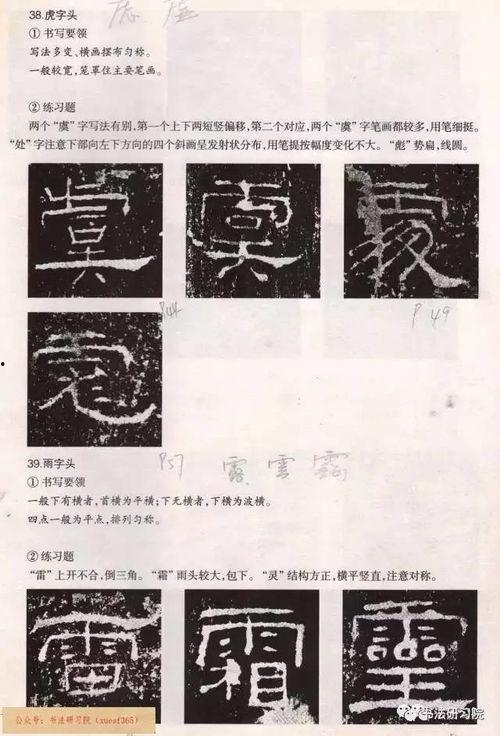 38.虎字头
① 书写要领
写法多变、横画摆布匀称。
一般较宽，笼罩住主要笔画。
② 练习题
两个“虞”字写法有别，第一个上下两短竖偏移，第二个对应，两个“虞”字笔画都较多，用笔细挺。
“处”字注意下部向左下方向的四个斜画呈发射状分布，用笔提按幅度变化不大。“彪”势扁，线圆。
P44
P49
39.雨字头
P57 露 雲 霭
① 书写要领
一般下有横者，首横为平横；下无横者，下横为波横。
四点一般为平点，排列匀称。
② 练习题
“雷”上开不合，倒三角。“霜”雨头较大，包下。“灵”结构方正，横平竖直，注意对称。
雷 霜 靈
公众号：书法研习院（xuesf365）
书法研习院